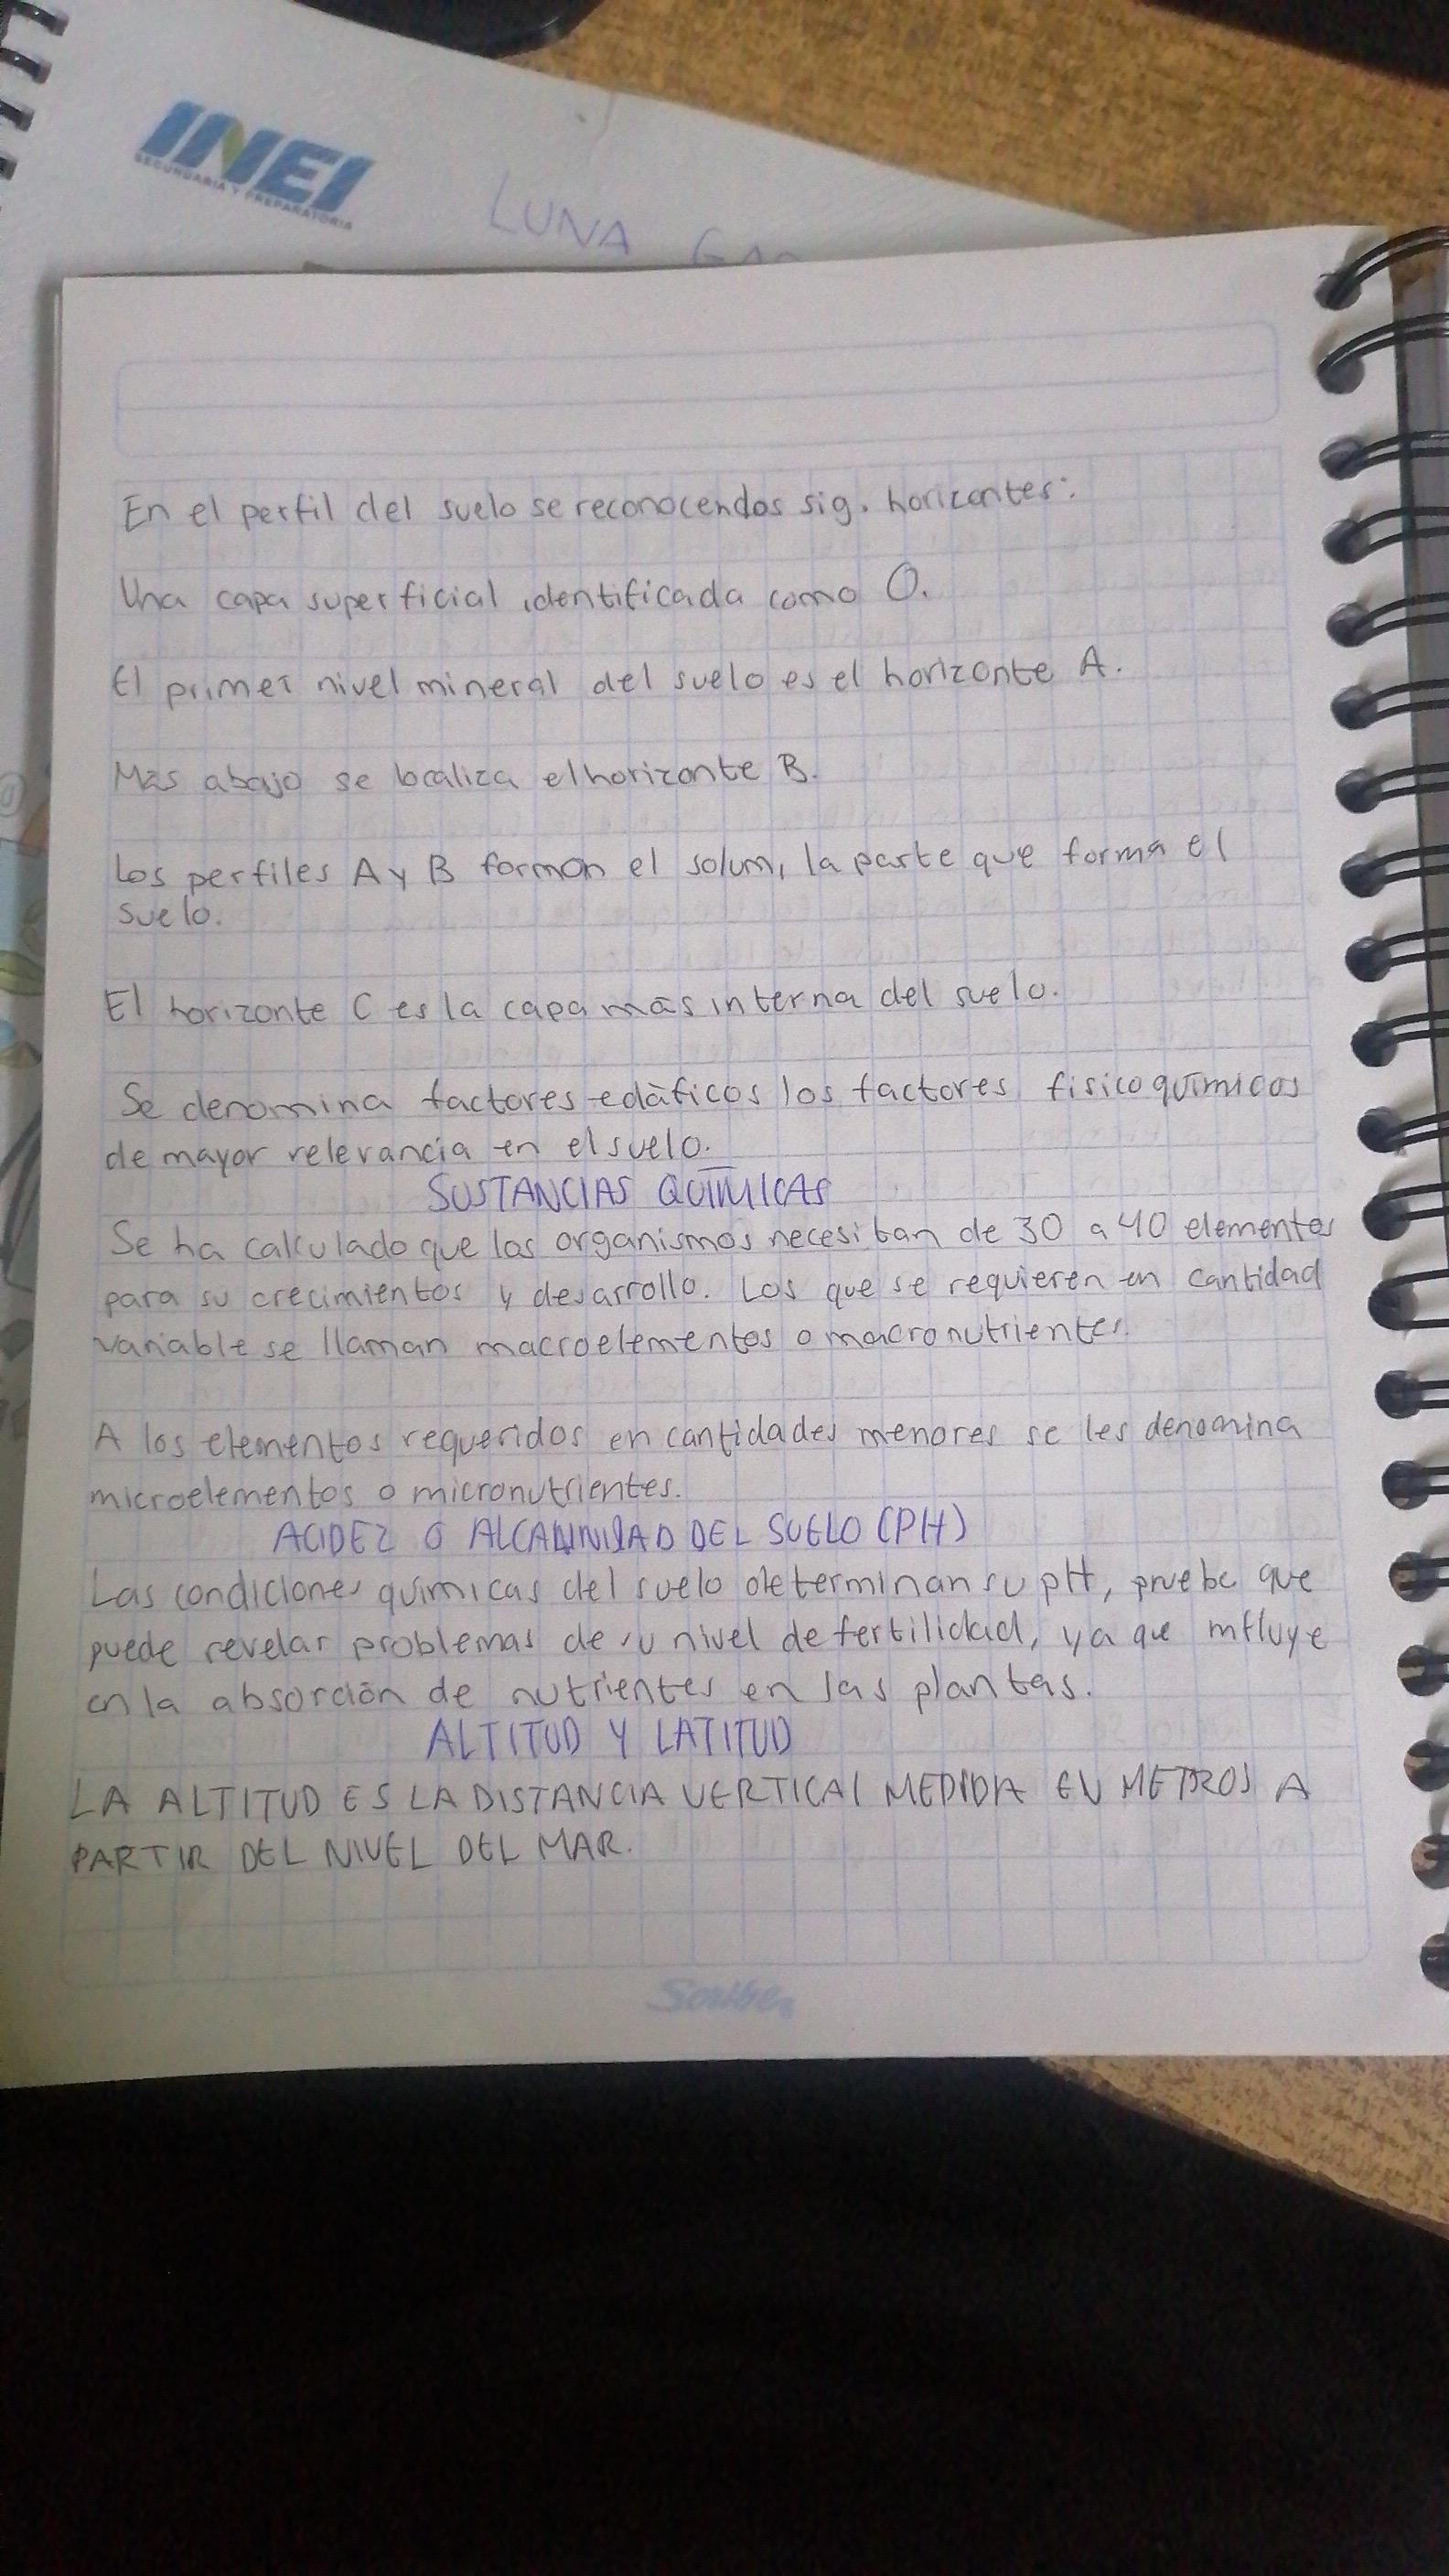 INEI
SECUNDARIA Y PREPARATORIA
LUNA
En el perfil del suelo se reconocen dos sig. horizontes:
Una capa superficial identificada como O.
El primer nivel mineral del suelo es el horizonte A.
Más abajo se localiza el horizonte B.
Los perfiles A y B forman el solum, la parte que forma el
suelo.
El horizonte C es la capa más interna del suelo.
Se denomina factores edáficos los factores fisicoquímicos
de mayor relevancia en el suelo.
SUSTANCIAS QUÍMICAS
Se ha calculado que los organismos necesitan de 30 a 40 elementos
para su crecimientos y desarrollo. Los que se requieren en cantidad
variable se llaman macroelementos o macronutrientes.
A los elementos requeridos en cantidades menores se les denomina
microelementos o micronutrientes.
ACIDEZ O ALCALINIDAD DEL SUELO (PH)
Las condiciones químicas del suelo determinan su pH, pruebe que
puede revelar problemas de su nivel de fertilidad, ya que influye
en la absorción de nutrientes en las plantas.
ALTITUD Y LATITUD
LA ALTITUD ES LA DISTANCIA VERTICAL MEDIDA EN METROS A
PARTIR DEL NIVEL DEL MAR.
Scribe